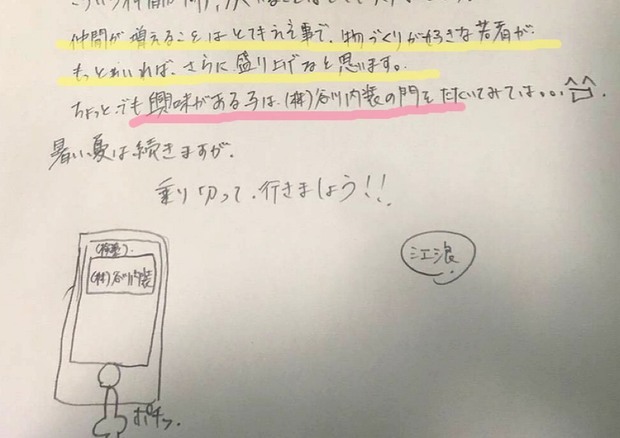 仲間が増えることはとてもええ事で、物づくりが好きな若者が
もっといれば、さらに盛り上げると思います。
ちょっとでも興味がある子は、(株)谷川内装の門をたたいてみては。。。
暑い夏は続きますが、
乗り切って、行きましょう!!
江浪
(株)谷川内装
ポチッ。